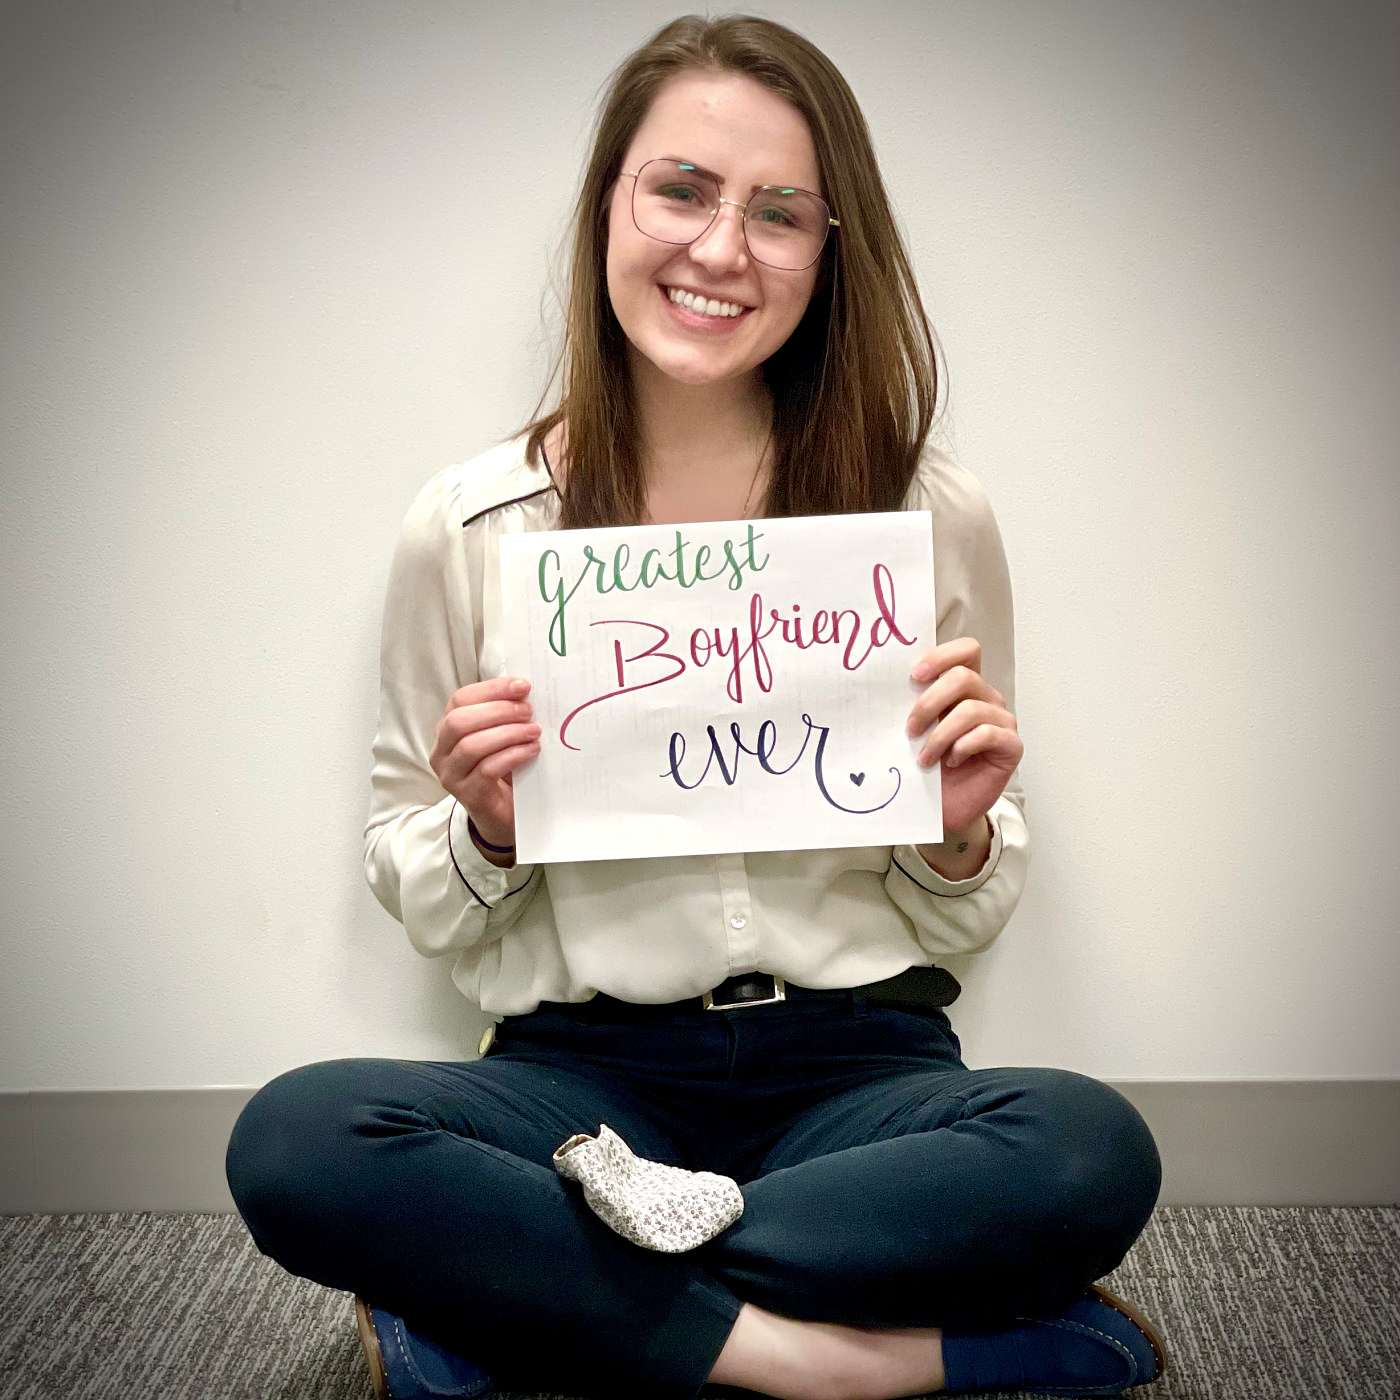 greatest
Boyfriend
ever